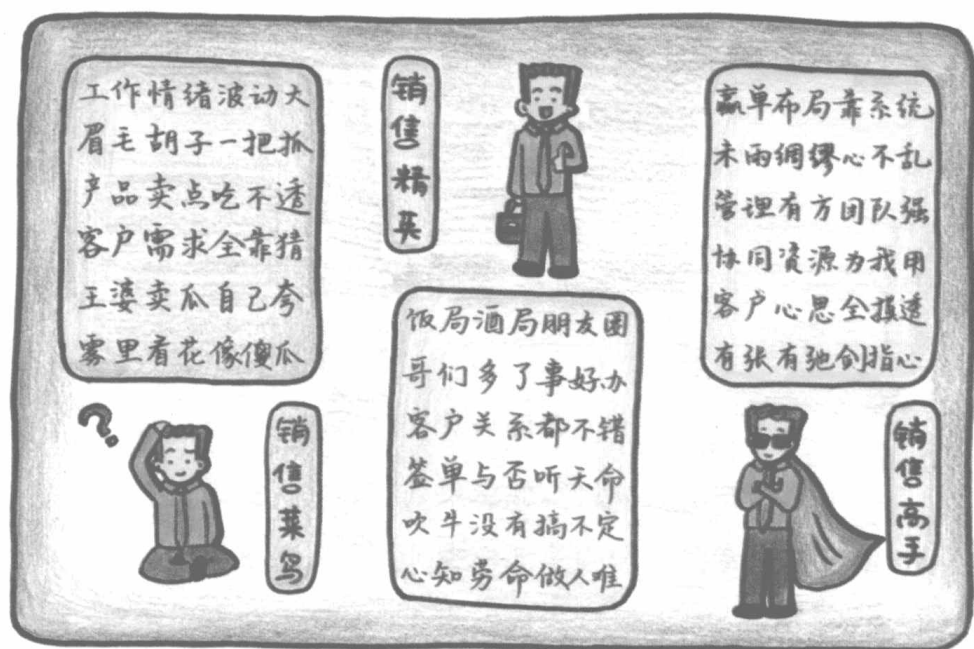 工作情绪波动大
眉毛胡子一把抓
产品卖点吃不透
客户需求全靠猜
王婆卖瓜自己夸
雾里看花像傻瓜
销售菜鸟
销售精英
饭局酒局朋友圈
哥们多了事好办
客户关系都不错
签单与否听天命
吹牛没有搞不定
心知劳命做人唯
赢单布局靠系统
未雨绸缪心不乱
管理有方团队强
协同资源为我用
客户心思全摸透
有张有弛剑指心
销售高手